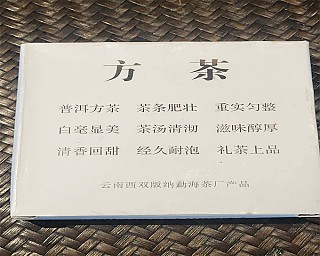 方 茶
普洱方茶 茶条肥壮 重实匀整
白毫显美 茶汤清沏 滋味醇厚
清香回甜 经久耐泡 礼茶上品
云南西双版纳勐海茶厂产品